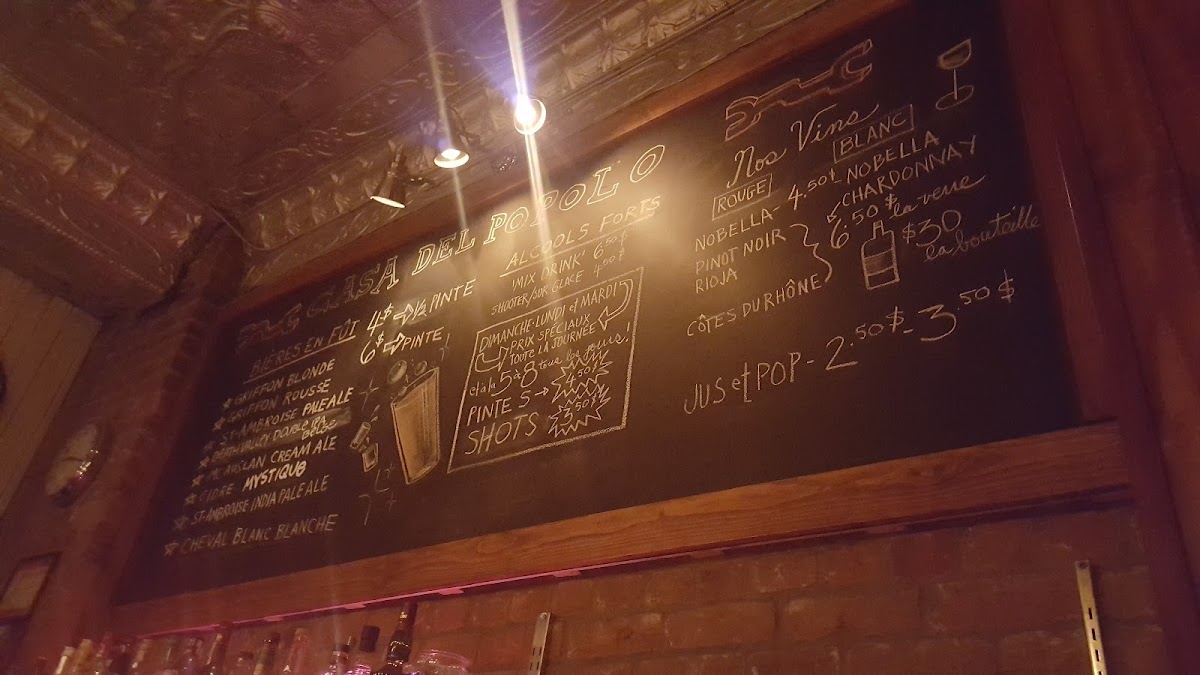 CASA DEL POPOLO
BIÈRES EN FÛT 4$ → ½ PINTE
6$ → PINTE
GRIFFON BLONDE
GRIFFON ROUSSE
ST-AMBROISE PALE ALE
DEATH VALLEY DOBLE IPA
BELGE
MC AUSLAN CREAM ALE
CIDRE MYSTIQUE
ST-AMBROISE INDIA PALE ALE
CHEVAL BLANC BLANCHE
ALCOOLS FORTS
'MIX DRINK' 6.50$
SHOOTER/SUR GLACE 4.00$
DIMANCHE-LUNDI et MARDI
PRIX SPÉCIAUX
TOUTE LA JOURNÉE
et à la 5 à 8 tous les jours!
PINTES → 4.50$
SHOTS 3.50$
Nos Vins
ROUGE
BLANC
NOBELLA - 4.50$ NOBELLA
PINOT NOIR
CHARDONNAY
RIOJA
CÔTES DU RHÔNE
6.50$ la verre
$30
la bouteille
JUS et POP - 2.50$ - 3.50$